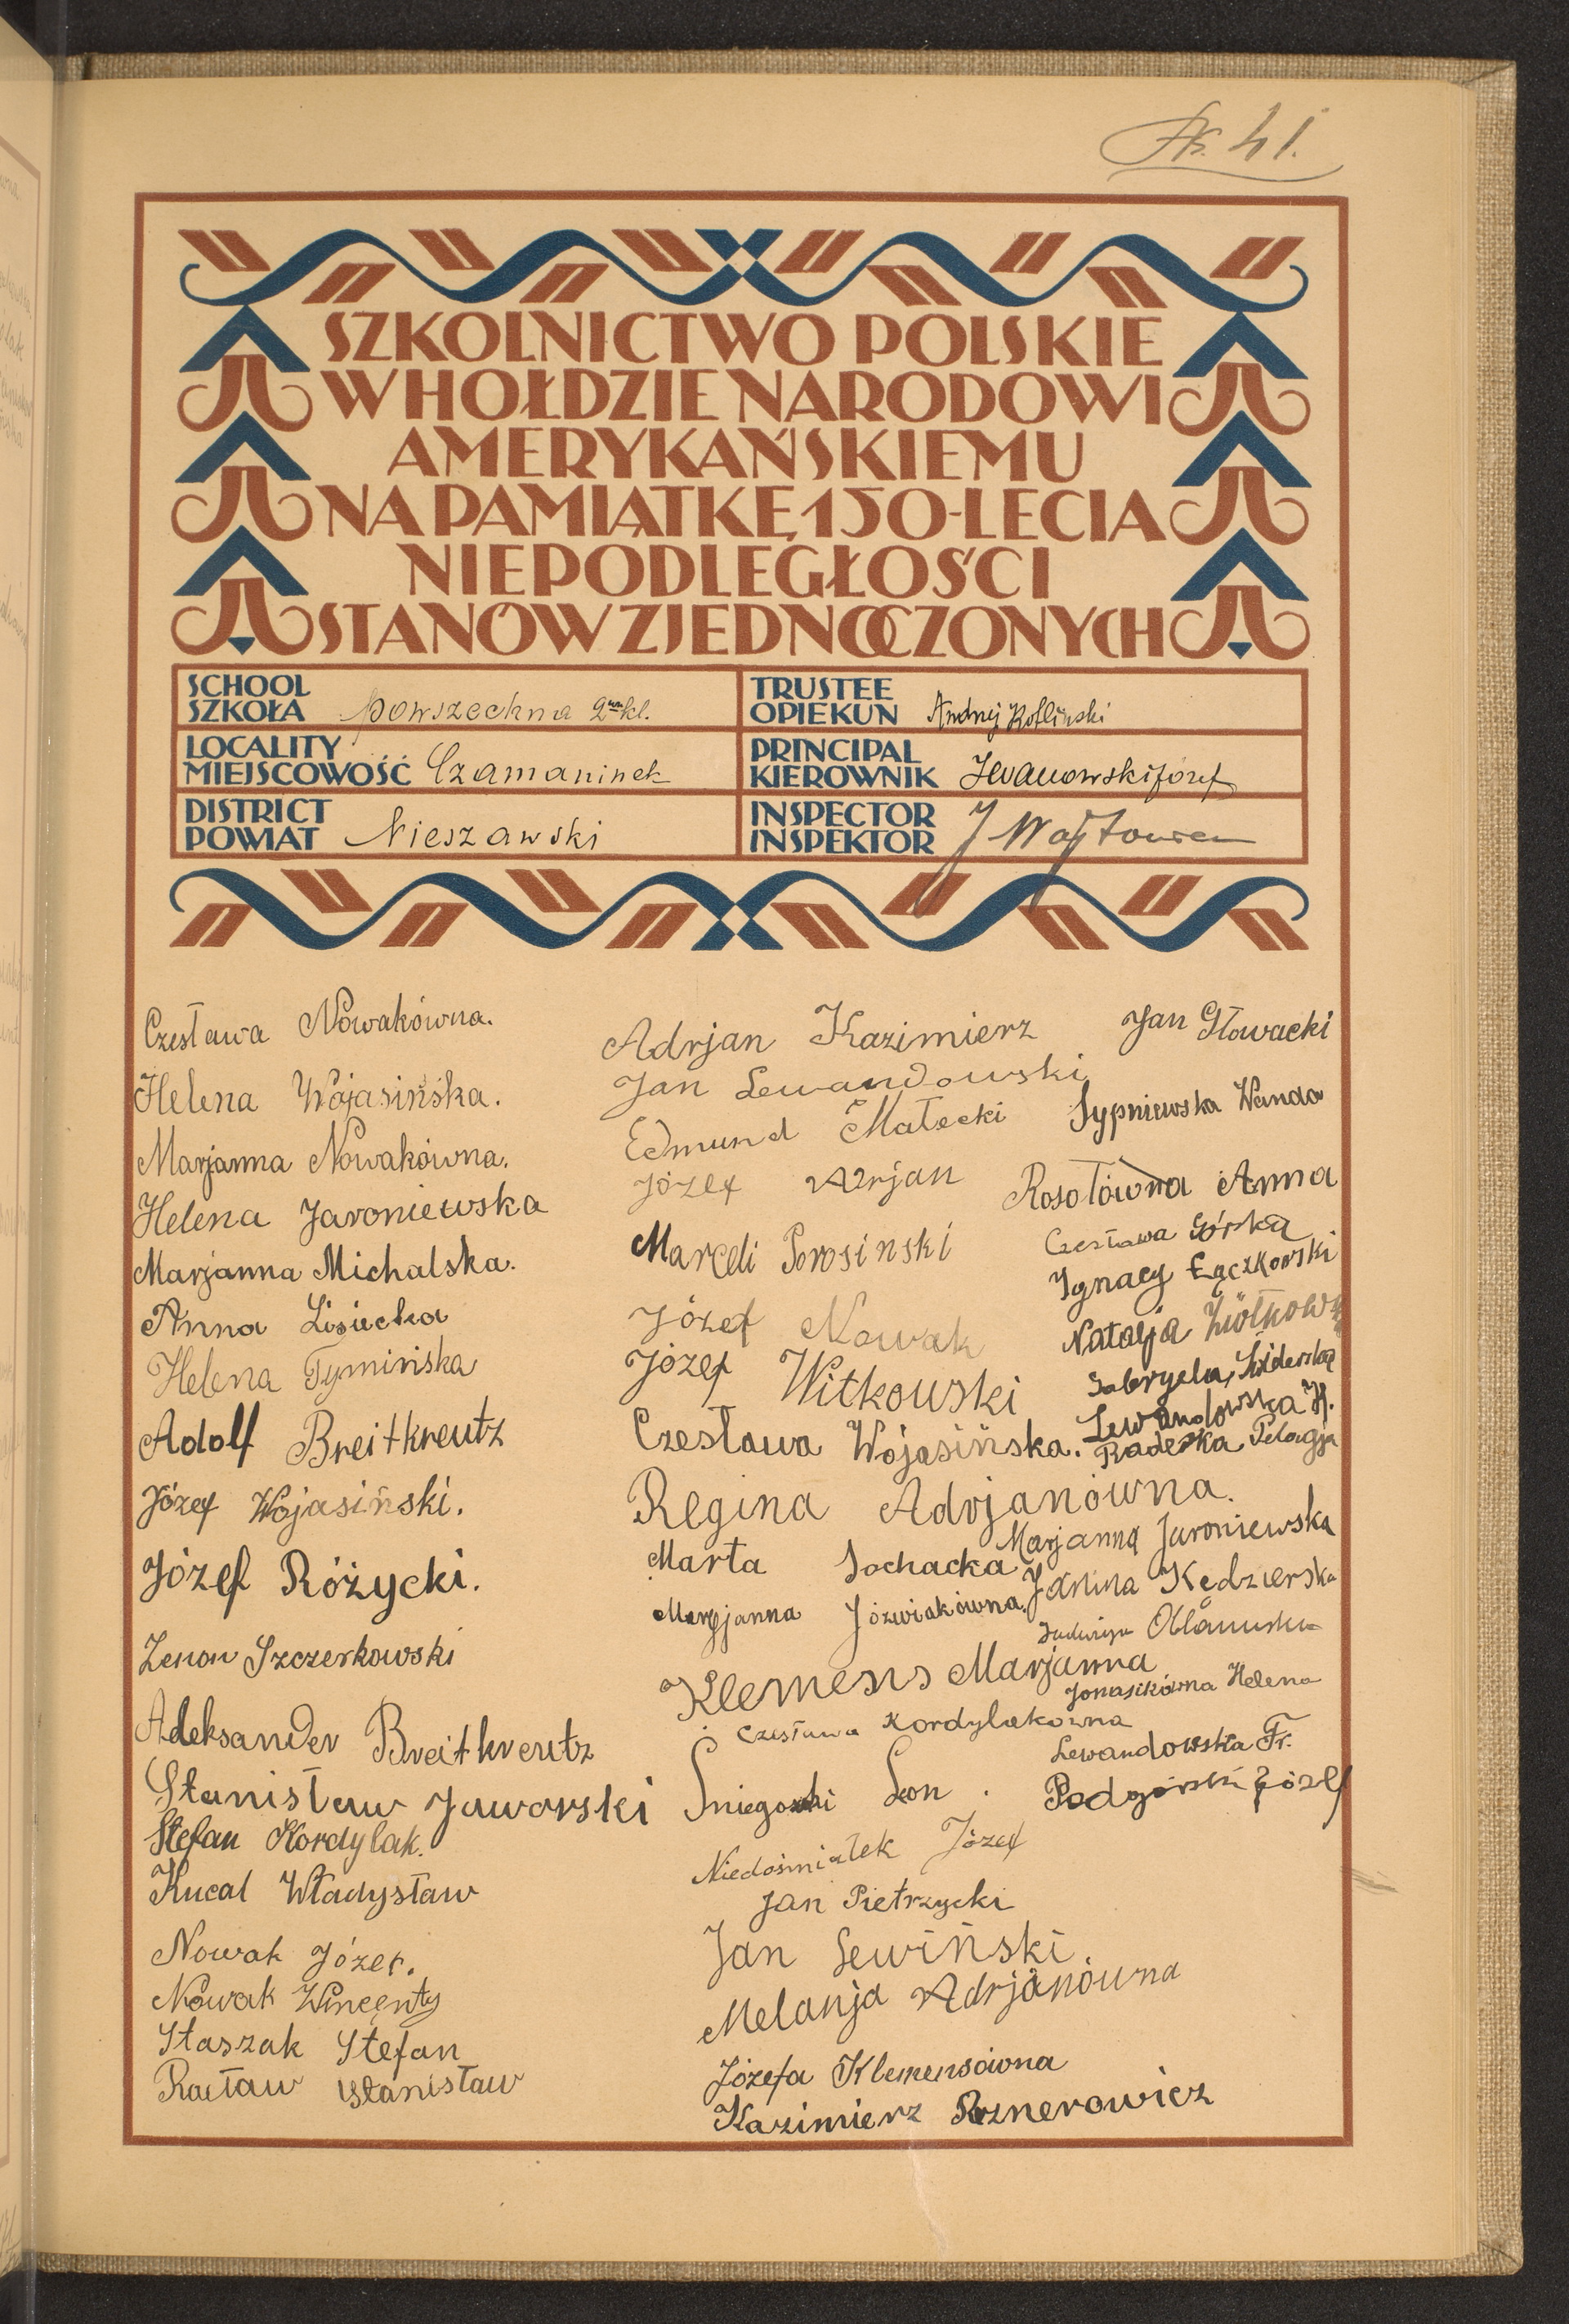 41.
SZKOLNICTWO POLSKIE
W HOŁDZIE NARODOWI
AMERYKAŃSKIEMU
NA PAMIĄTKĘ 150-LECIA
NIEPODLEGŁOŚCI
STANÓW ZJEDNOCZONYCH
SCHOOL
SZKOŁA powszechna 2kl.
LOCALITY
MIEJSCOWOŚĆ Czamaninek
DISTRICT
POWIAT Nieszawski
TRUSTEE
OPIEKUN Andrzej Kofliński
PRINCIPAL
KIEROWNIK Iwanowski Józef
INSPECTOR
INSPEKTOR J
Czesława Nowakówna.
Helena Wojasińska.
Marjanna Nowakówna.
Helena Jaroniewska
Marjanna Michalska.
Anna Lisiecka
Helena Tymińska
Adolf Breitkreutz
Józef Wojasiński.
Józef Różycki.
Zenon Szczerkowski
Aleksander Breitkreutz
Stanisław Jaworski
Stefan Kordylak.
Kucal Władysław
Nowak Józef.
Nowak Wincenty
Staszak Stefan
Racław Stanisław
Adrjan Kazimierz
Jan Lewandowski
Edmund Małecki
Józef Adrjan
Marceli Porosinski
Józef Nowak
Józef Witkowski
Czesława Wojasińska.
Regina Adrjanówna.
Marta Sochacka
Marjanna Józwiakówna.
Klemens Marjanna
Czesława Kordylakówna
Śniegocki Leon.
Niedośmiałek Józef
Jan Pietrzycki
Jan Lewiński.
Melanja Adrjanówna
Józefa Klemensówna
Kazimierz Roznerowicz
Jan Głowacki
Sypniewska Wanda
Rosołówna Anna
Czesława Górska
Ignacy Łączkowski
Natalja
Gabryela Świderska
Lewandowska H.
Raderska Pelagja
Marjanna Jaroniewska
Janina Kędzierska
Jadwiga
Jonasikówna Helena
Lewandowska Fr.
Podgórski Józef